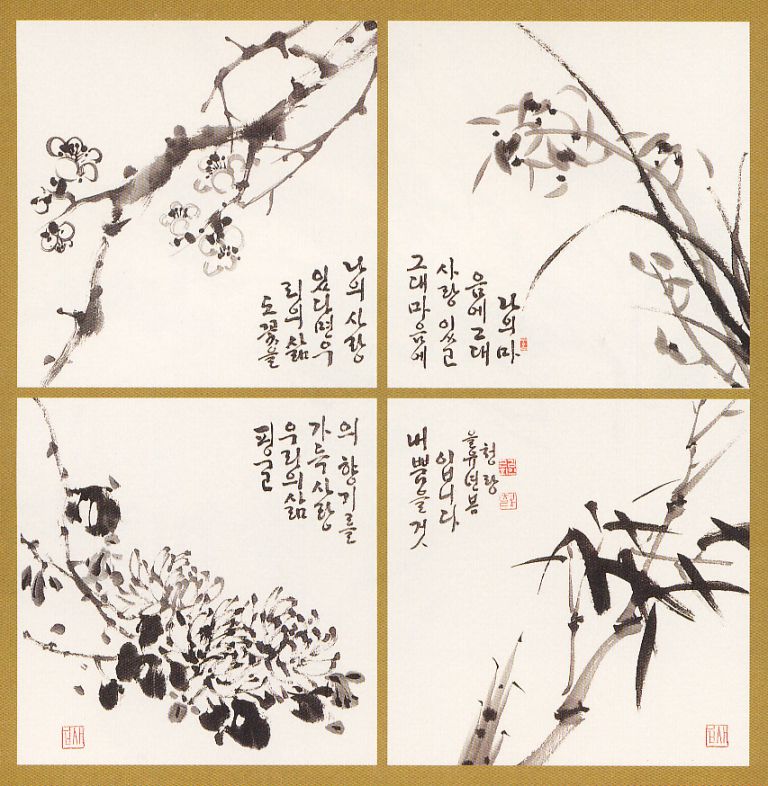 나의마
음에그대
사랑 있고
그대마음에
나의사랑
있다면우
리의삶
도꽃을
피우고
우리의삶
가득사랑
의향기를
내뿜을것
입니다
을유년봄
청랑